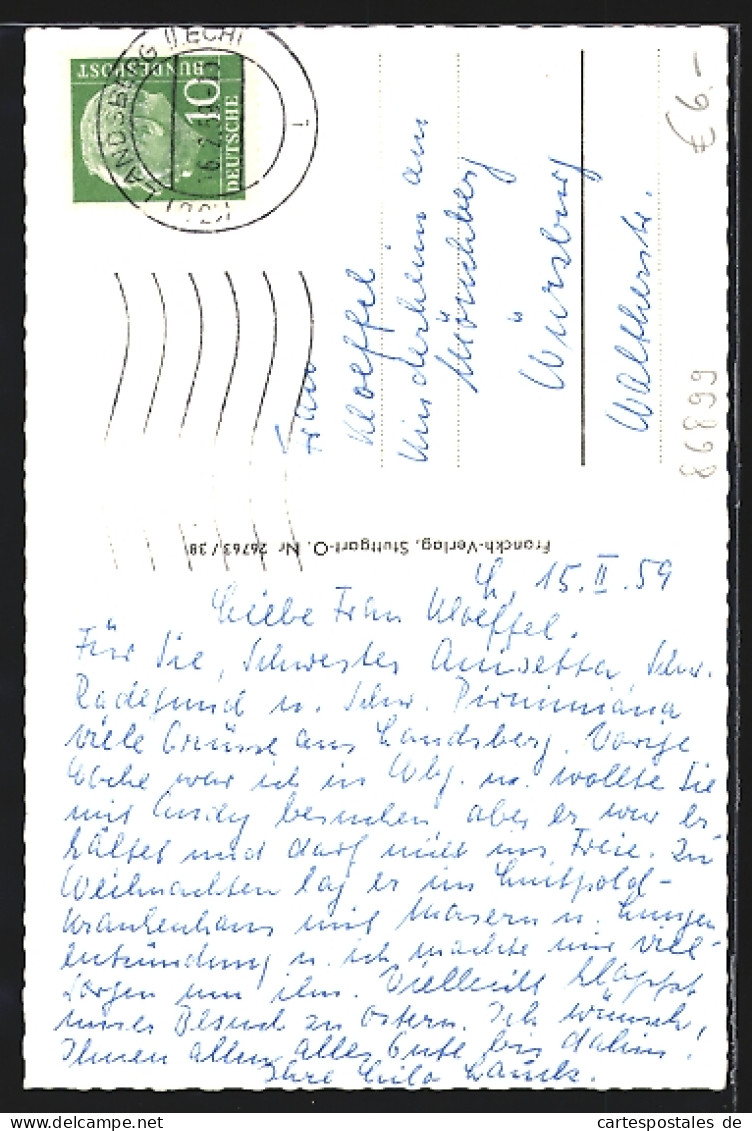 LANDSBERG (LECH)
DEUTSCHE
BUNDESPOST
10
€ 6.-
86899
Frau
Kloeffel
Kinderheim am
Mönchberg
Würzburg
Waltherstr.
Franckh-Verlag, Stuttgart-O. Nr 26763/38
L, 15.II.59
Liebe Frau Kloeffel.
Für Sie, Schwester Anisetta, Schw.
Radegund u. Schw. Pirminiana
viele Grüsse aus Landsberg. Vorige
Woche war ich in Wbg. u. wollte Sie
mit besuchen aber er war er-
kältet und darf nicht ins Freie. Zu
Weihnachten lag er im Luitpold-
krankenhaus mit Masern u. Lungen
entzündung u. ich machte mir viel
Sorgen um ihn. Vielleicht klappt
unser Besuch zu Ostern. Ich wünsche
Ihnen allen alles Gute bis dahin!
Ihre
cartespostales.de